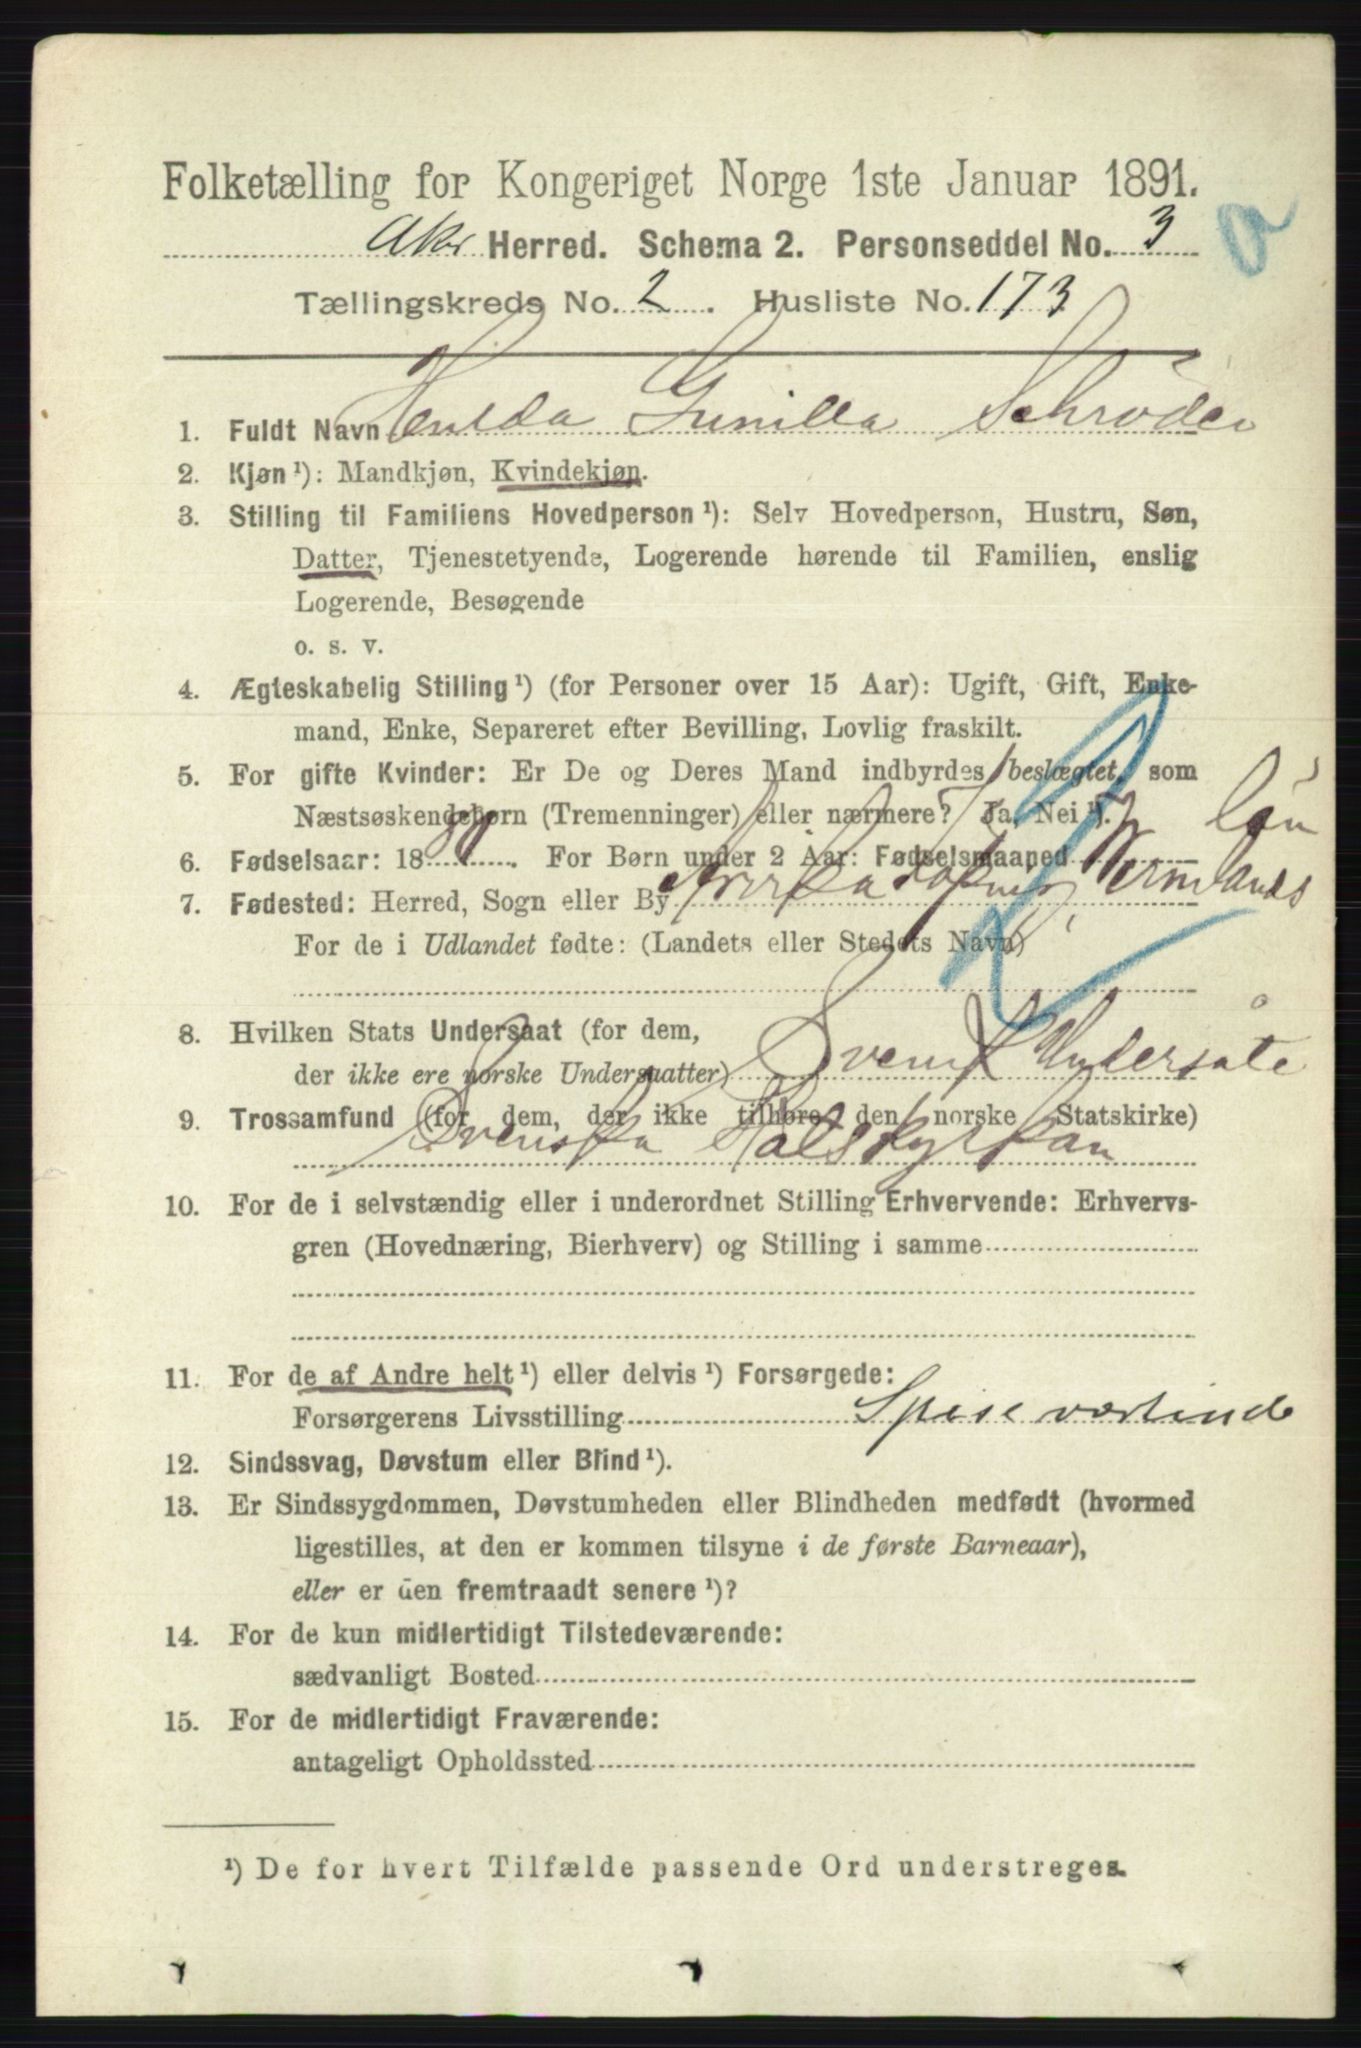 Folketælling for Kongeriget Norge 1ste Januar 1891.
a
Aker Herred. Schema 2. Personseddel No. 3
Tællingskreds No. 2. Husliste No. 173
1. Fuldt Navn Hulda Gunilla Schröder
2. Kjøn ¹): Mandkjøn, Kvindekjøn.
3. Stilling til Familiens Hovedperson ¹): Selv Hovedperson, Hustru, Søn,
Datter, Tjenestetyende, Logerende hørende til Familien, enslig
Logerende, Besøgende
o. s. v.
4. Ægteskabelig Stilling ¹) (for Personer over 15 Aar): Ugift, Gift, Enke-
mand, Enke, Separeret efter Bevilling, Lovlig fraskilt.
5. For gifte Kvinder: Er De og Deres Mand indbyrdes beslægtet, som
Næstsøskendebørn (Tremenninger) eller nærmere? Ja, Nei ¹).
6. Fødselsaar: 18 . For Børn under 2 Aar: Fødselsmaaned
7. Fødested: Herred, Sogn eller By Wermlands län
For de i Udlandet fødte: (Landets eller Stedets Navn)
8. Hvilken Stats Undersaat (for dem,
der ikke ere norske Undersaatter) Svensk Undersåte
9. Trossamfund (for dem, der ikke tilhøre den norske Statskirke)
Svenska Statskyrkan
10. For de i selvstændig eller i underordnet Stilling Erhvervende: Erhvervs-
gren (Hovednæring, Bierhverv) og Stilling i samme
11. For de af Andre helt ¹) eller delvis ¹) Forsørgede:
Forsørgerens Livsstilling Spiseværtinde
12. Sindssvag, Døvstum eller Blind ¹).
13. Er Sindssygdommen, Døvstumheden eller Blindheden medfødt (hvormed
ligestilles, at den er kommen tilsyne i de første Barneaar),
eller er den fremtraadt senere ¹)?
14. For de kun midlertidigt Tilstedeværende:
sædvanligt Bosted
15. For de midlertidigt Fraværende:
antageligt Opholdssted
¹) De for hvert Tilfælde passende Ord understreges.